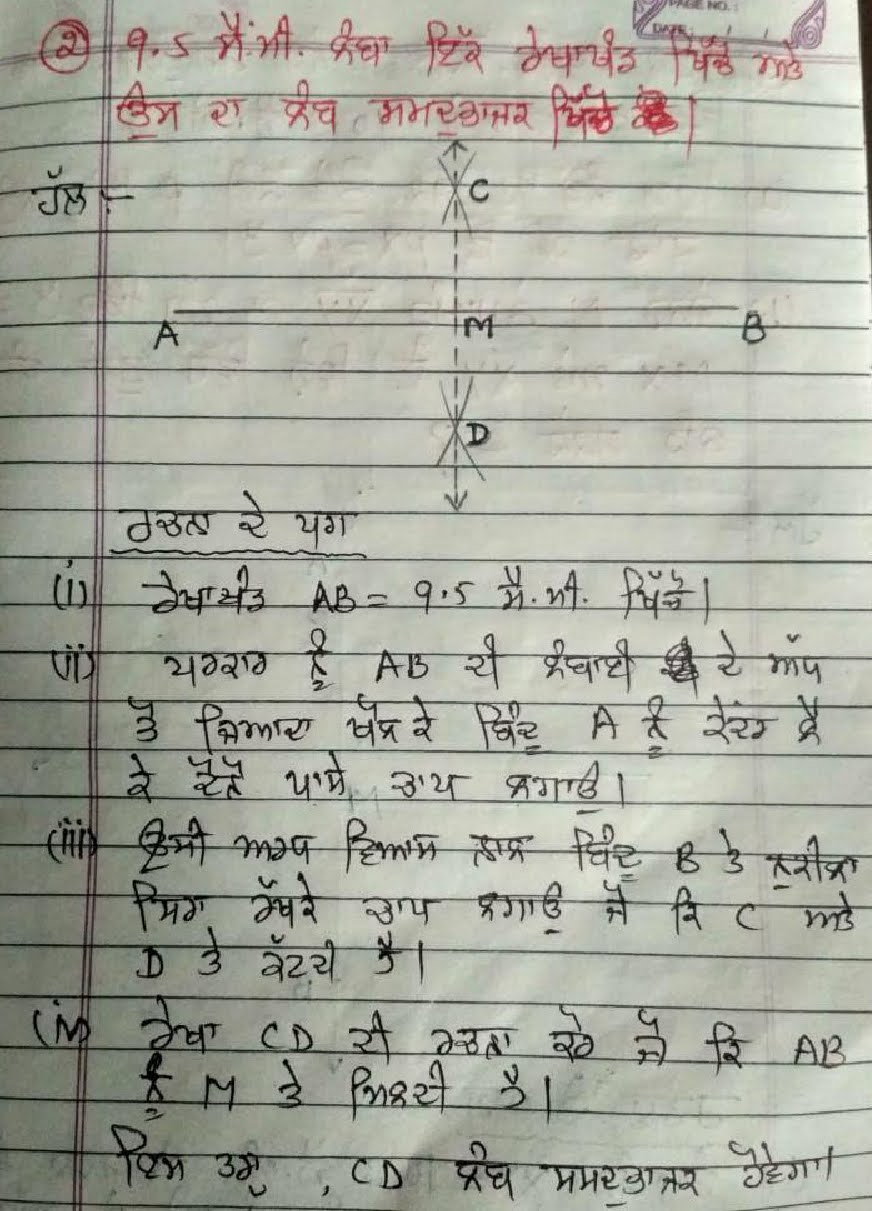 PAGE NO.:
DATE
(2) 9.5 ਸੈਂ.ਮੀ. ਲੰਬਾ ਇੱਕ ਰੇਖਾਖੰਡ ਖਿੱਚੋ ਅਤੇ
ਉਸ ਦਾ ਲੰਬ ਸਮਦੁਭਾਜਕ ਖਿੱਚੋ।
ਹੱਲ :-
C
A M B
D
ਰਚਨਾ ਦੇ ਪਗ
(i) ਰੇਖਾਖੰਡ AB = 9.5 ਸੈ.ਮੀ. ਖਿੱਚੋ।
(ii) ਪਰਕਾਰ ਨੂੰ AB ਦੀ ਲੰਬਾਈ ਦੇ ਅੱਧ
ਤੋਂ ਜ਼ਿਆਦਾ ਖੋਲ ਕੇ ਬਿੰਦੂ A ਨੂੰ ਕੇਂਦਰ ਲੈ
ਕੇ ਦੋਨੋਂ ਪਾਸੇ ਚਾਪ ਲਗਾਉ।
(iii) ਉਸੀ ਅਰਧ ਵਿਆਸ ਨਾਲ ਬਿੰਦੂ B ਤੇ ਨੁਕੀਲਾ
ਸਿਰਾ ਰੱਖਕੇ ਚਾਪ ਲਗਾਉ ਜੋ ਕਿ C ਅਤੇ
D ਤੇ ਕੱਟਦੀ ਹੈ।
(iv) ਰੇਖਾ CD ਦੀ ਰਚਨਾ ਕਰੋ ਜੋ ਕਿ AB
ਨੂੰ M ਤੇ ਮਿਲਦੀ ਹੈ।
ਇਸ ਤਰ੍ਹਾਂ, CD ਲੰਬ ਸਮਦੁਭਾਜਕ ਹੋਵੇਗਾ।